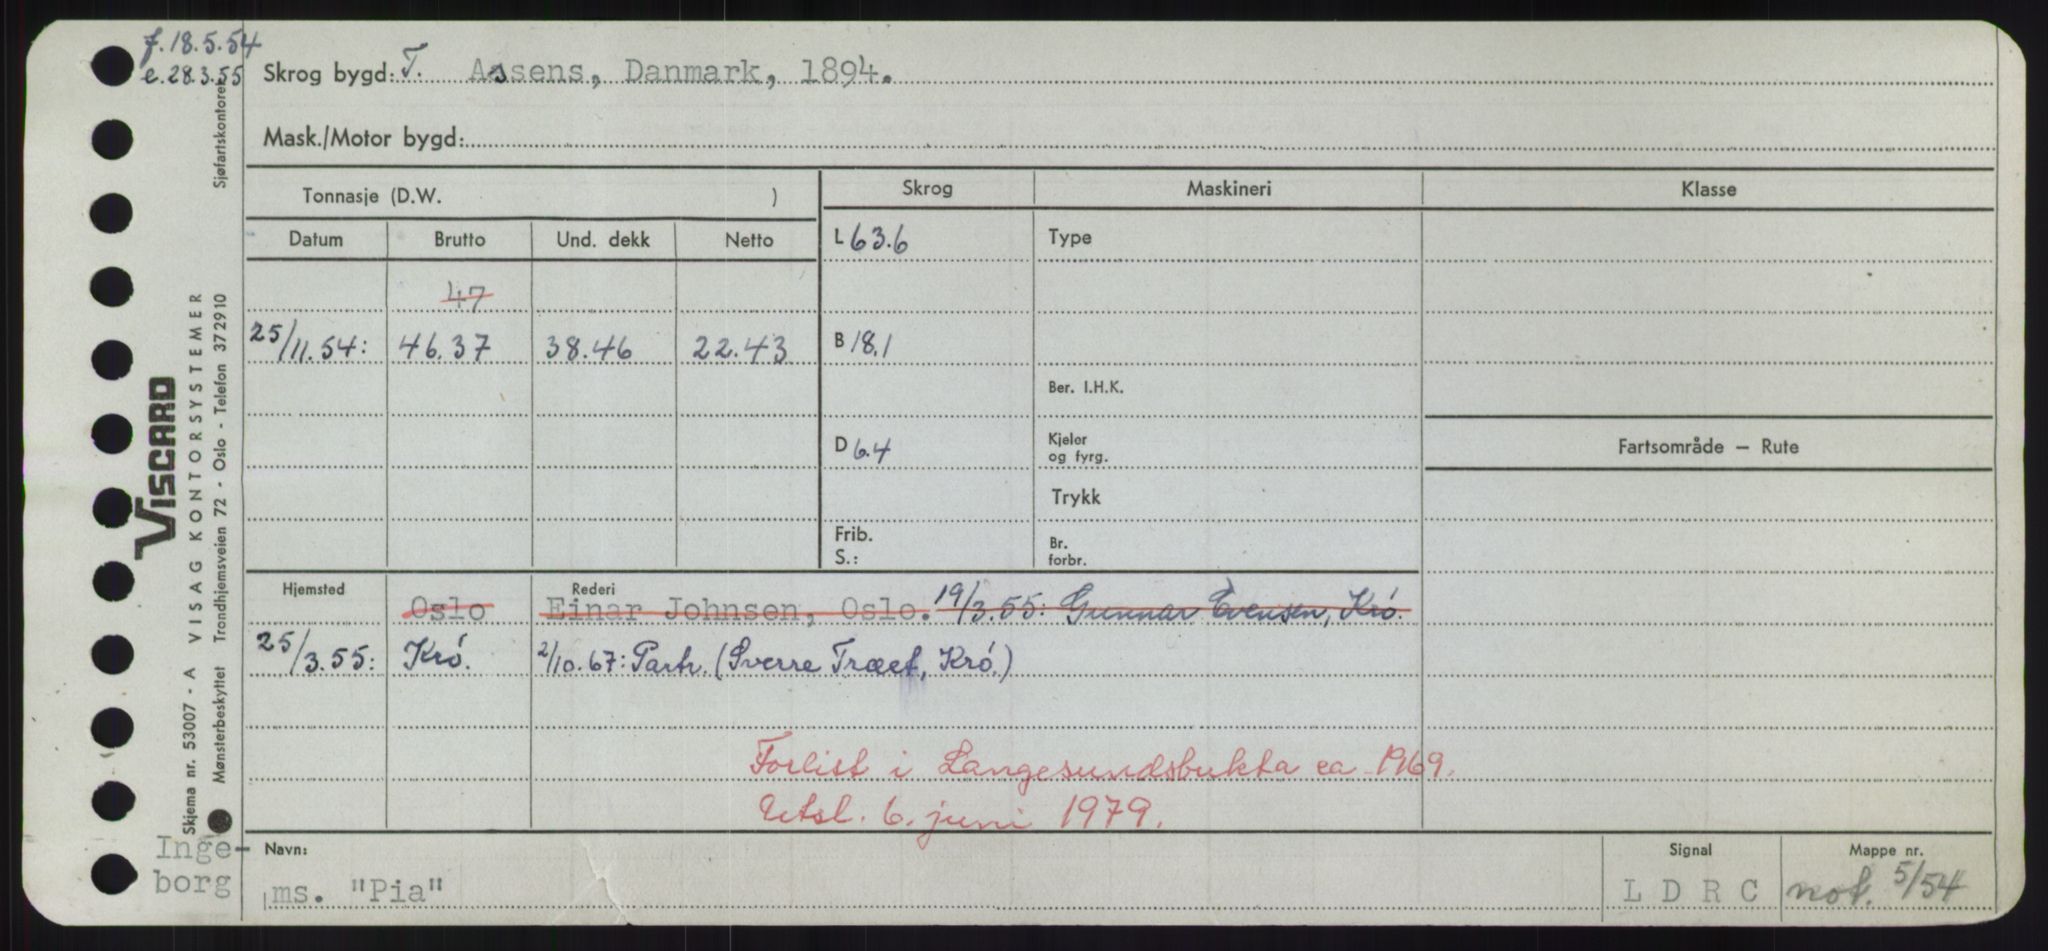 f. 18.5.54
e. 28.3.55
Skrog bygd: T. Assens, Danmark, 1894.
Mask./Motor bygd:
Tonnasje (D.W. )
Skrog
Maskineri
Klasse
Datum
Brutto
Und. dekk
Netto
L 63.6
Type
47
25/11.54: 46.37 38.46 22.43
B 18.1
Ber. I.H.K.
D 6.4
Kjeler
og fyrg.
Fartsområde – Rute
Trykk
Frib.
S.:
Br.
forbr.
Hjemsted
Rederi
Oslo
Einar Johnsen, Oslo. 19/3.55: Gunnar Evensen, Krö.
25/3.55: Krö. 2/10.67: Partr. (Sverre Træet, Krö.)
Forlist i Langesundsbukta ca 1969.
Utsl. 6. juni 1979.
Inge-
borg
Navn:
ms. "Pia"
Signal
L D R C
Mappe nr.
not. 5/54
VISCARD
Skjema nr. 53007 - A VISAG KONTORSYSTEMER
Mønsterbeskyttet Trondhjemsveien 72 - Oslo - Telefon 372910
Sjøfartskontoret